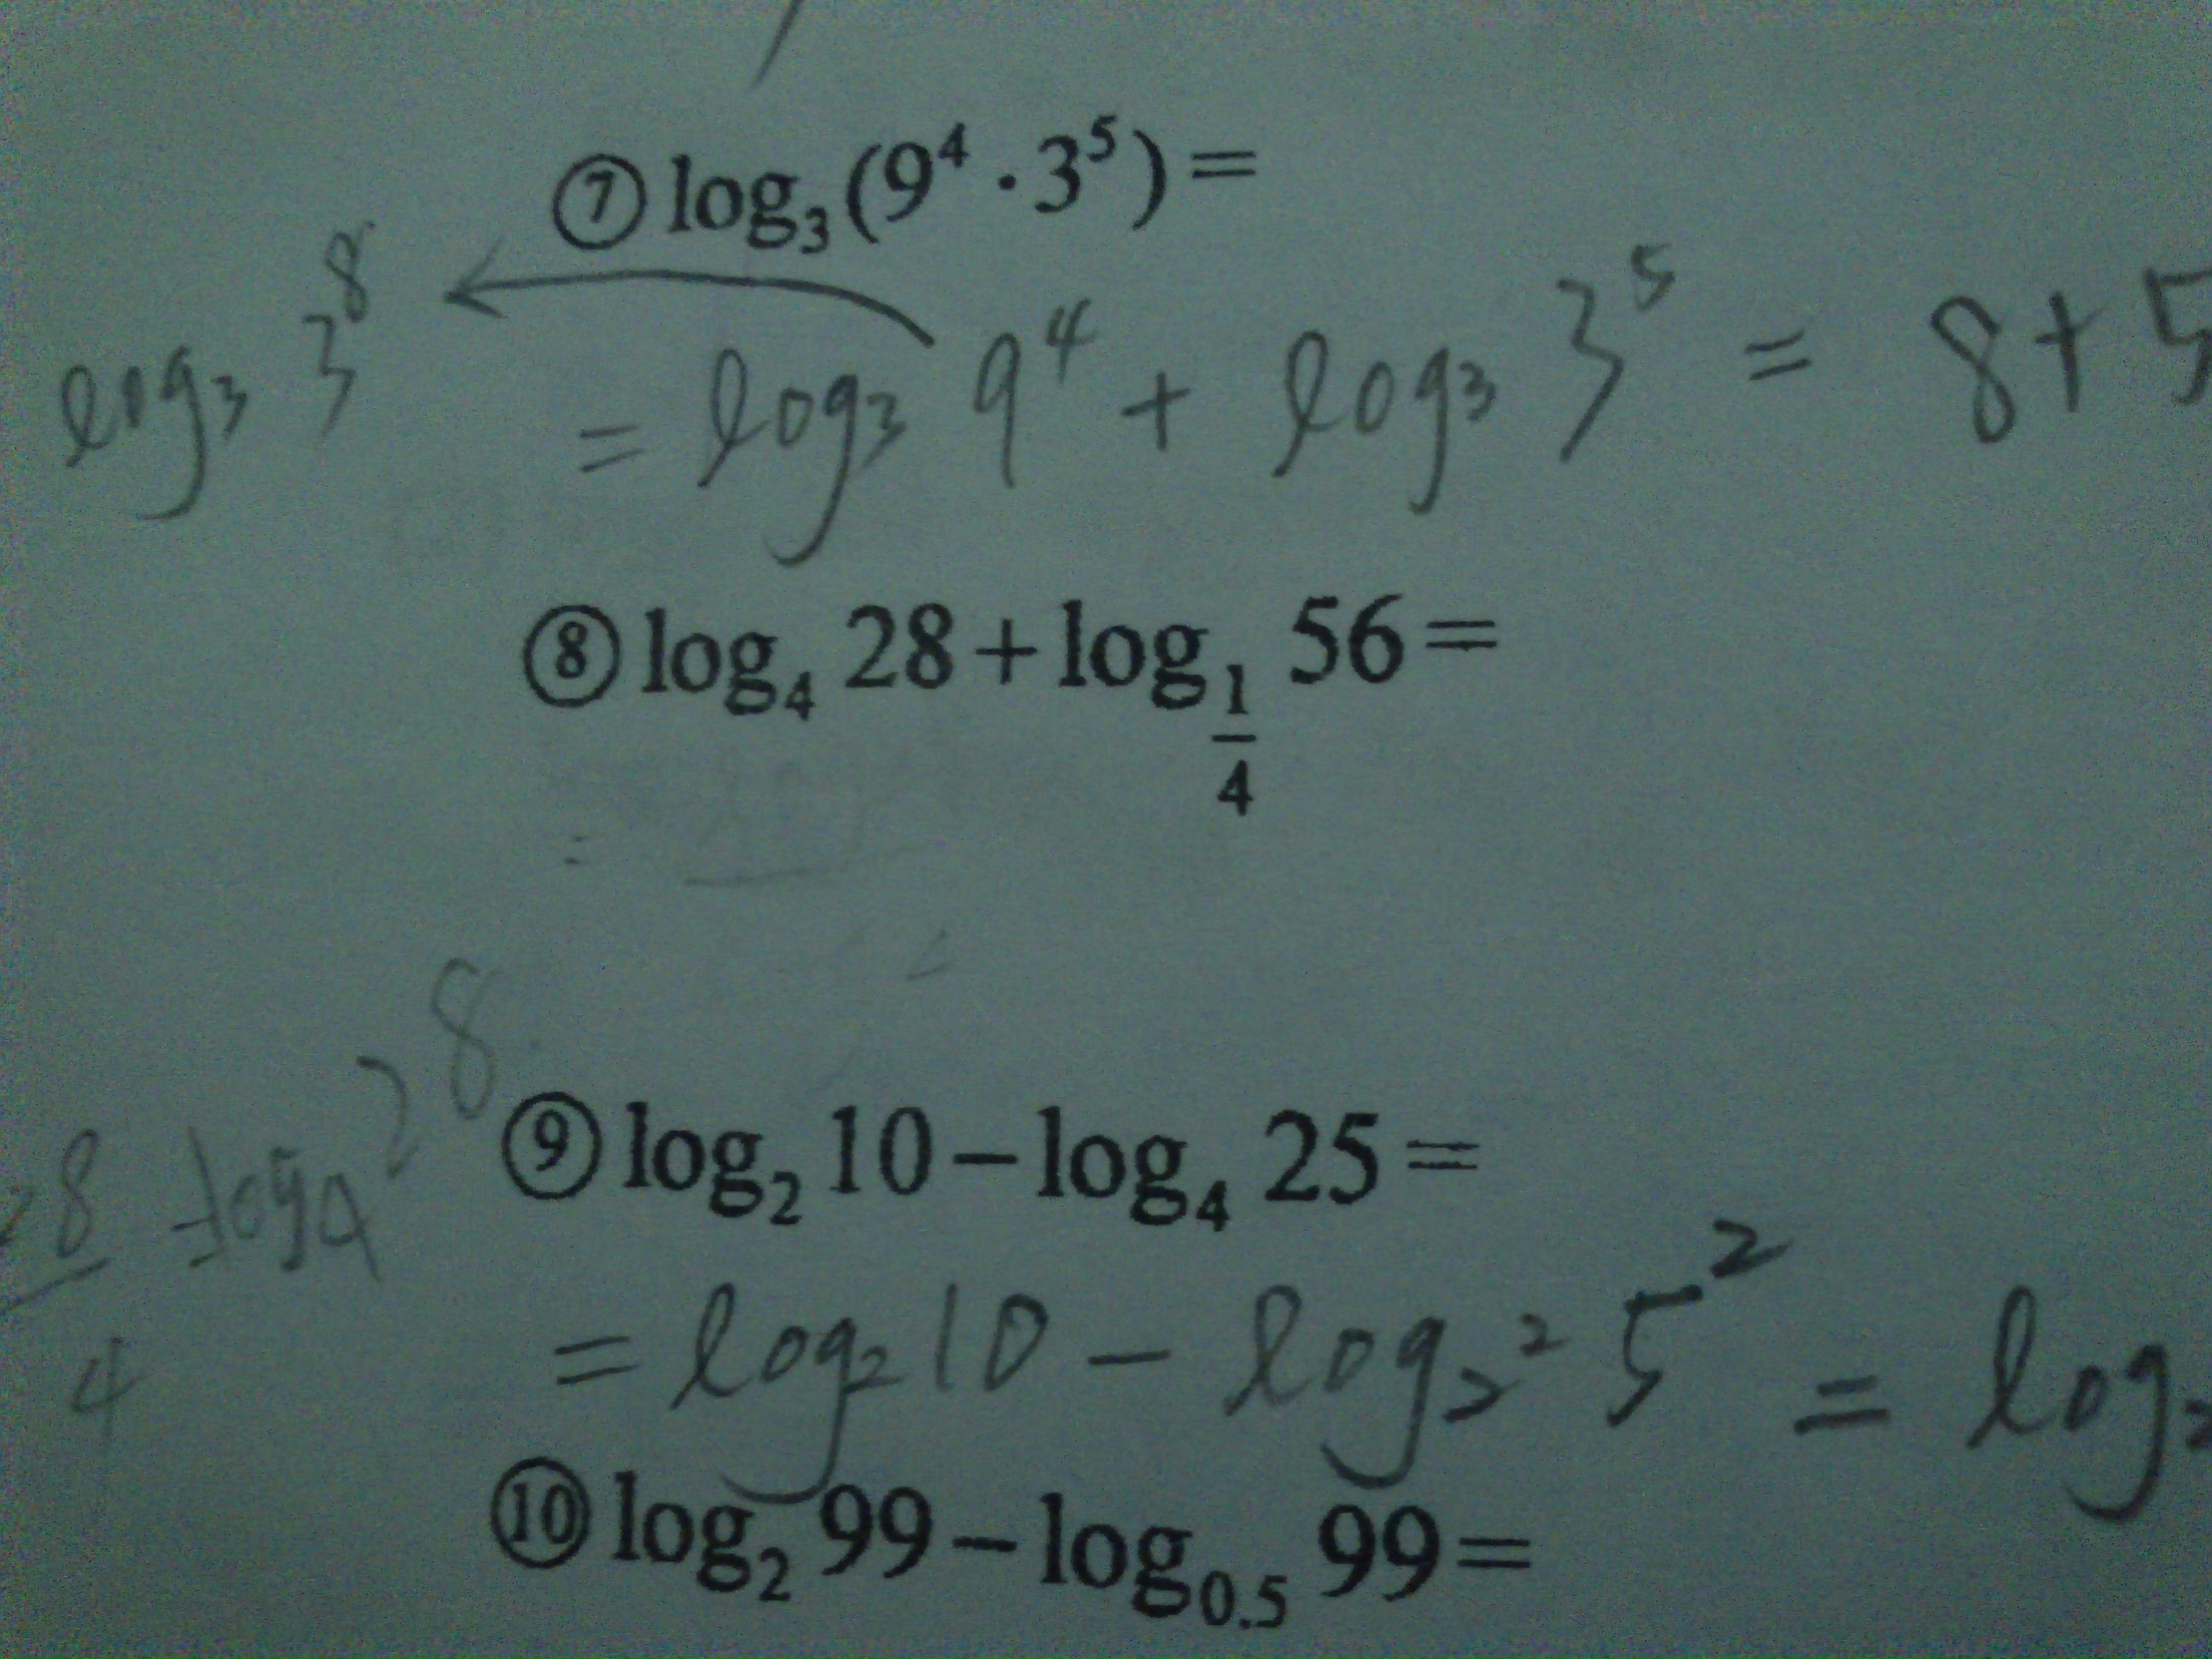 ⑦ log₃(9⁴·3⁵)=
log₃ 3⁸
= log₃ 9⁴ + log₃ 3⁵ = 8+5
⑧ log₄ 28+log_{1/4} 56=
28/4 -log₄ 28
⑨ log₂ 10−log₄ 25=
= log₂ 10 − log₂² 5² = log₂
⑩ log₂ 99−log₀.₅ 99=